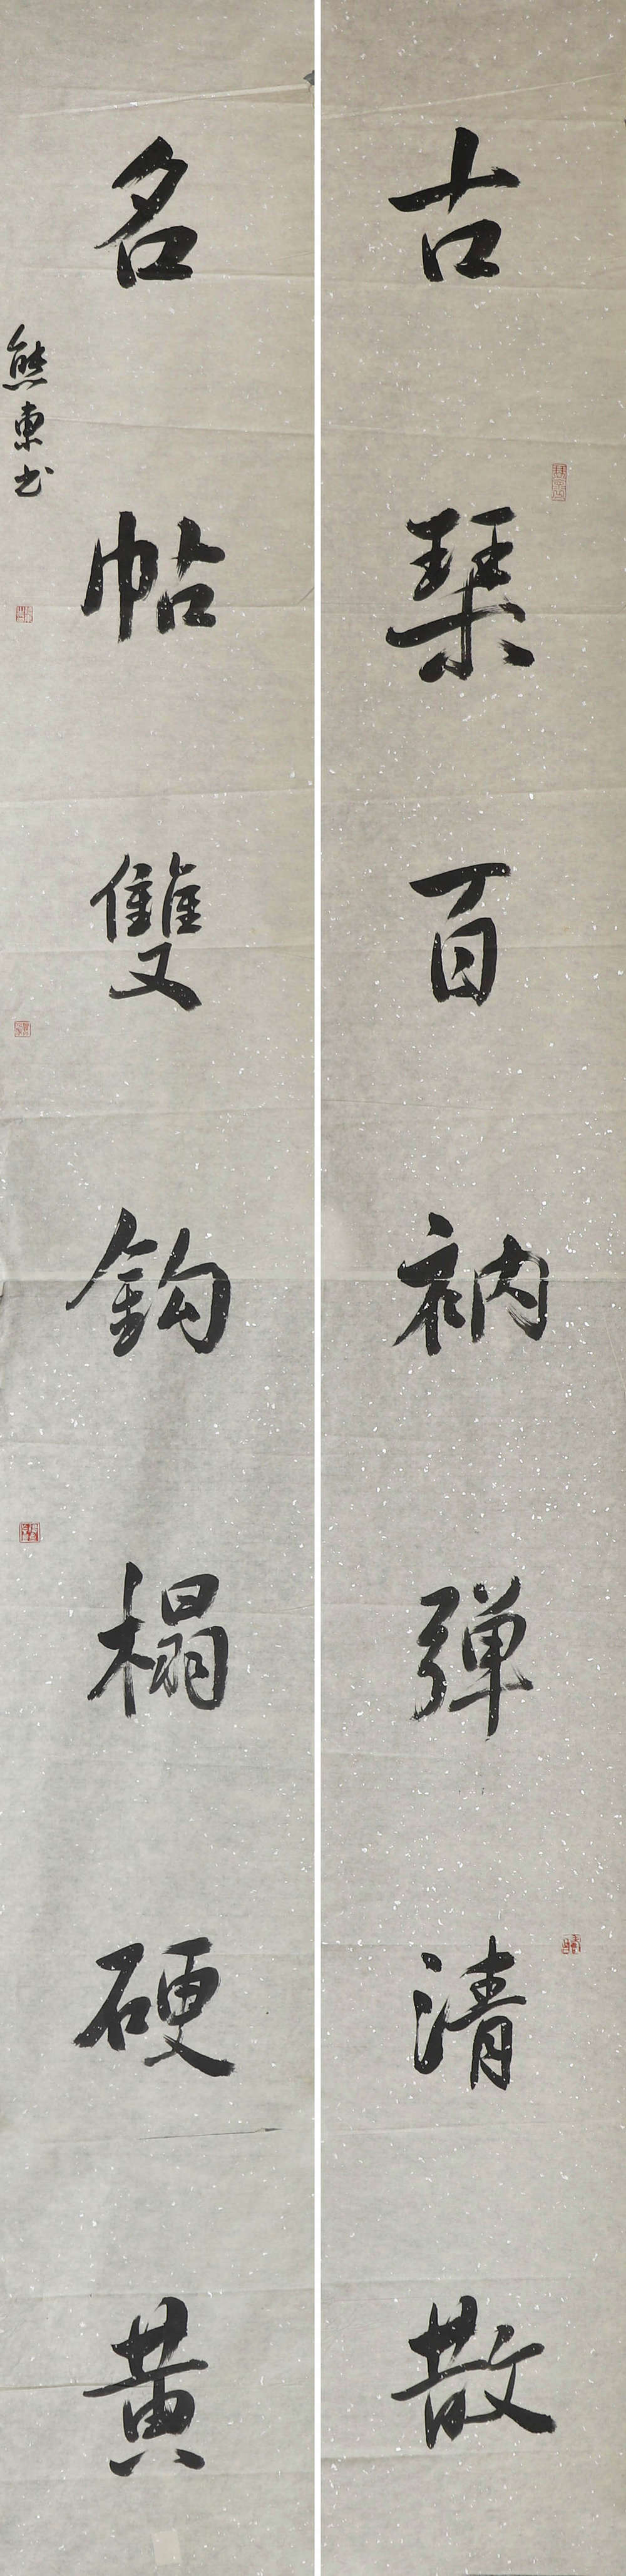 古琹百衲弹清散
名帖雙鈎榻硬黄
熊東书